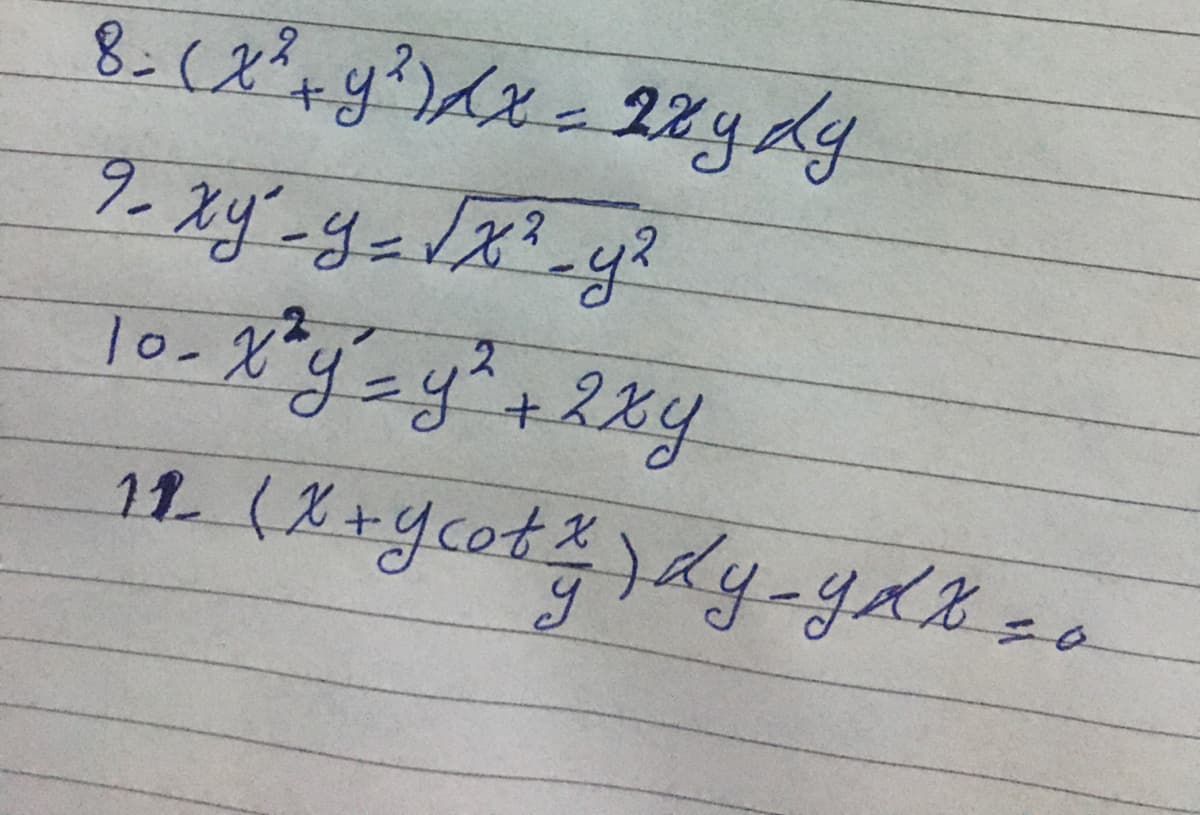 8- (x² + y²)dx = 2xy dy
9- xy′ - y = √x² - y²
10- x²y′ = y² + 2xy
11- (x + y cot x/y) dy - y dx = 0